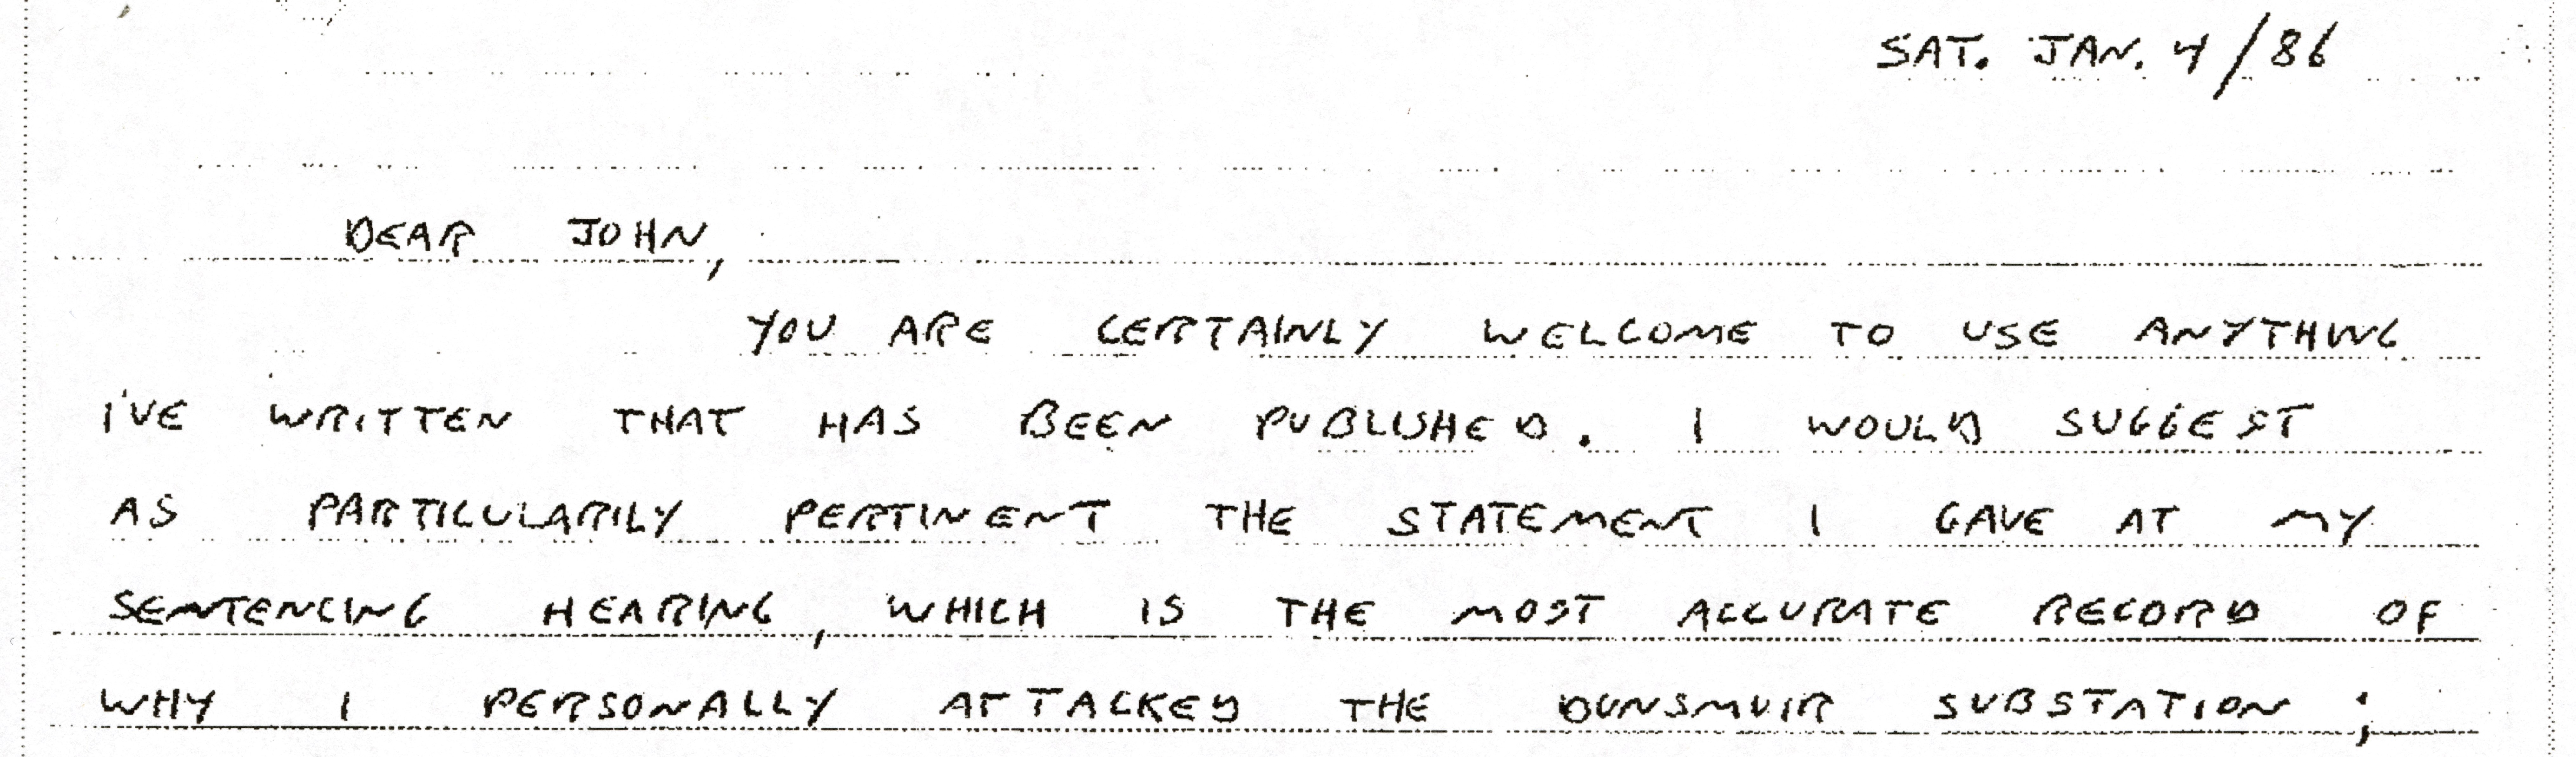 SAT. JAN. 4/86
DEAR JOHN,
YOU ARE CERTAINLY WELCOME TO USE ANYTHING
I'VE WRITTEN THAT HAS BEEN PUBLISHED. I WOULD SUGGEST
AS PARTICULARILY PERTINENT THE STATEMENT I GAVE AT MY
SENTENCING HEARING, WHICH IS THE MOST ACCURATE RECORD OF
WHY I PERSONALLY ATTACKED THE DUNSMUIR SUBSTATION;